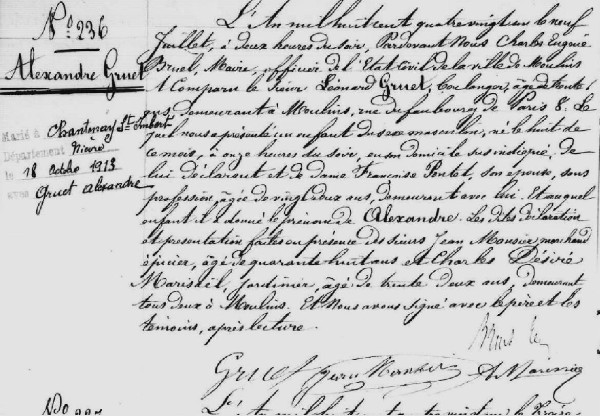 N° 236
Alexandre Gruet
Marié à Chantenay St Imbert
Département Nièvre
le 18 Octobre 1913
avec Gruet Alexandre
L'An mil huit cent quatre vingt un le neuf
Juillet, à deux heures du soir, Pardevant Nous Charles Eugène
Bruel, Maire, officier de l'Etat Civil de la ville de Moulins
A Comparu le Sieur Léonard Gruet, boulanger, âgé de trente
ans demeurant à Moulins, rue du faubourg de Paris 8. Le
quel nous a présenté un enfant du sexe masculin, né le huit de
ce mois, à onze heures du soir, en son domicile sus indiqué, de
lui déclarant et de dame Françoise Pontet, son épouse, sans
profession, âgée de vingt deux ans, demeurant avec lui. Et auquel
enfant il a donné le prénom de Alexandre. Les dites déclaration
et présentation faites en présence des sieurs Jean Monsier marchand
épicier, âgé de quarante huit ans et Charles Désiré
Mariskel, jardinier, âgé de trente deux ans, demeurant
tous deux à Moulins. Et Nous avons Signé avec le père et les
témoins, après lecture.
Gruet
L'An mil huit cent quatre vingt un le